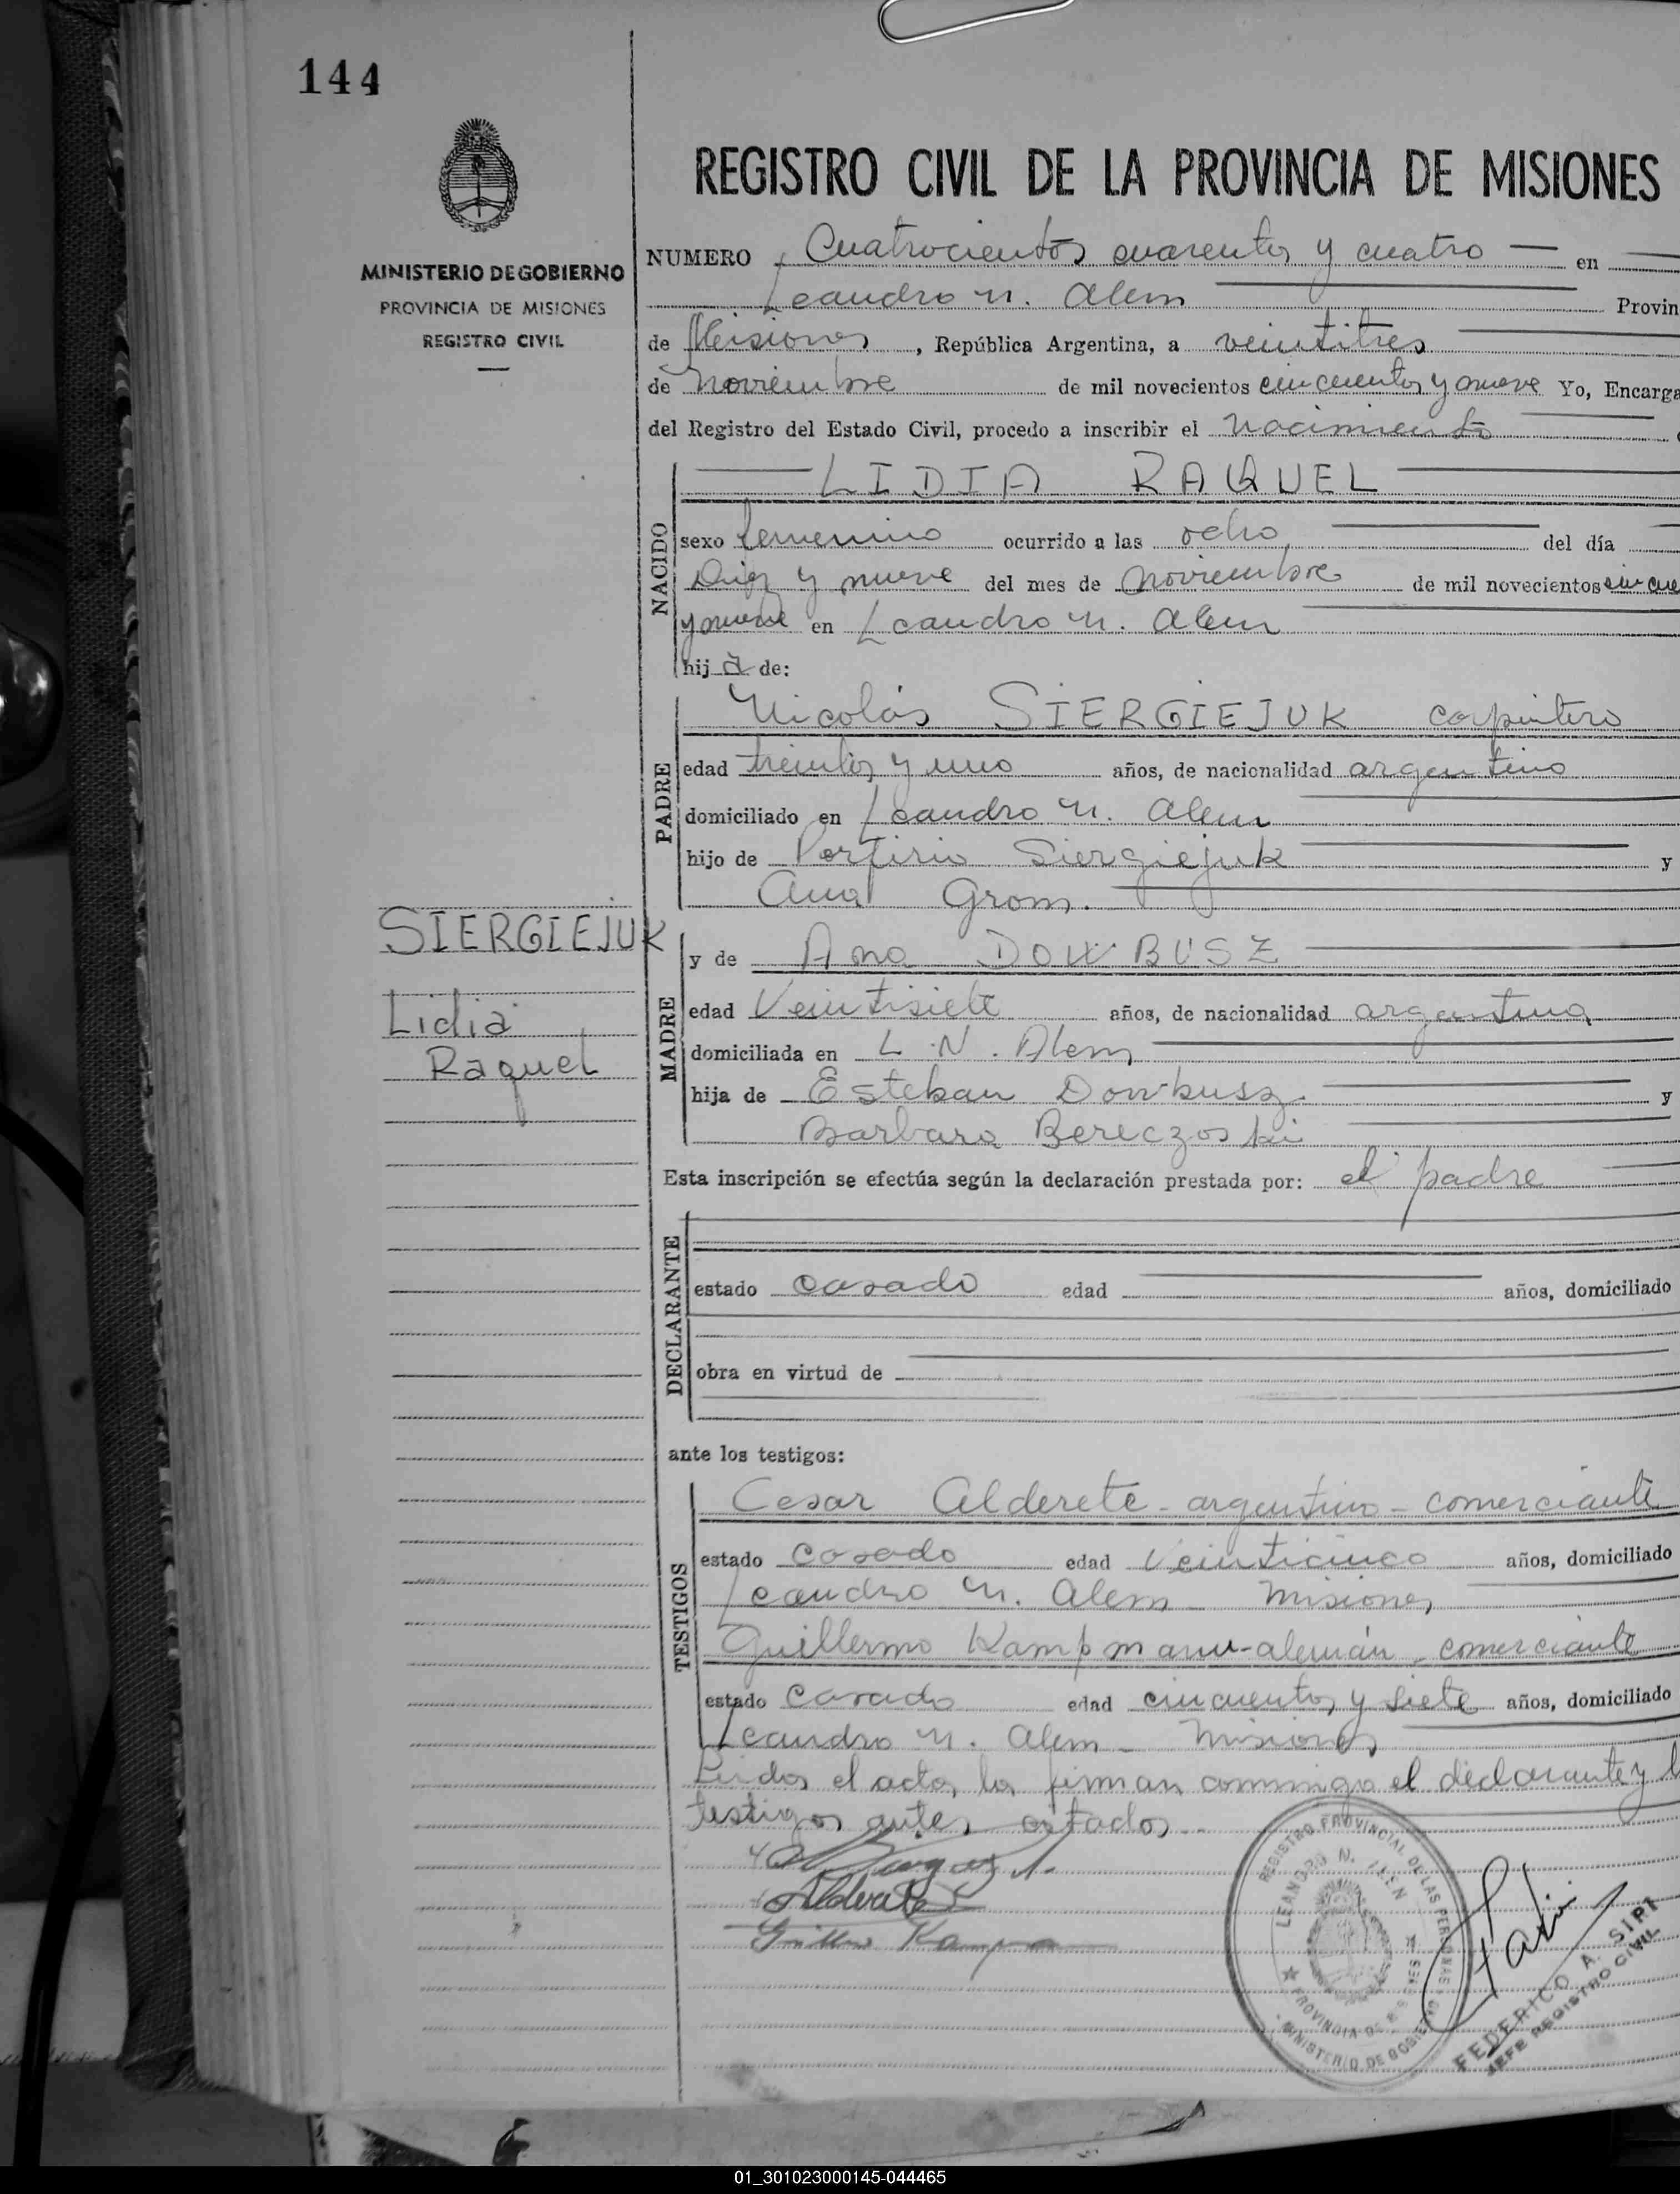 144
MINISTERIO DE GOBIERNO
PROVINCIA DE MISIONES
REGISTRO CIVIL
REGISTRO CIVIL DE LA PROVINCIA DE MISIONES
NUMERO Cuatrocientos cuarenta y cuatro en
Leandro N. Alem Provin
de Misiones, República Argentina, a veintitres
de noviembre de mil novecientos cincuenta y nueve Yo, Encarga
del Registro del Estado Civil, procedo a inscribir el nacimiento
NACIDO
LIDIA RAQUEL
sexo femenino ocurrido a las ocho del día
Diez y nueve del mes de noviembre de mil novecientos cincue
y nueve en Leandro N. Alem
hija de:
PADRE
Nicolás SIERGIEJUK carpintero
edad treinta y uno años, de nacionalidad argentino
domiciliado en Leandro N. Alem
hijo de Porfirio Siergiejuk y
Ana Grom.
SIERGIEJUK
Lidia
Raquel
MADRE
y de Ana DOWBUSZ
edad Veintisiete años, de nacionalidad argentina
domiciliada en L. N. Alem
hija de Esteban Dowbusz y
Barbara Bereczoski
Esta inscripción se efectúa según la declaración prestada por: el padre
DECLARANTE
estado casado edad años, domiciliado
obra en virtud de
ante los testigos:
TESTIGOS
Cesar Alderete - argentino - comerciante
estado casado edad Veinticinco años, domiciliado
Leandro N. Alem - Misiones
Guillermo Kampmann - alemán - comerciante
estado casado edad cincuenta y siete años, domiciliado
Leandro N. Alem - Misiones
Leida el acta, la firman conmigo el declarante y l
testigos antes citados.
Alderete
REGISTRO PROVINCIAL DE LAS PERSONAS
LEANDRO N. ALEM
PROVINCIA DE MISIONES
MINISTERIO DE GOBIERNO
FEDERICO A. SIRI
JEFE REGISTRO CIVIL
01_301023000145-044465